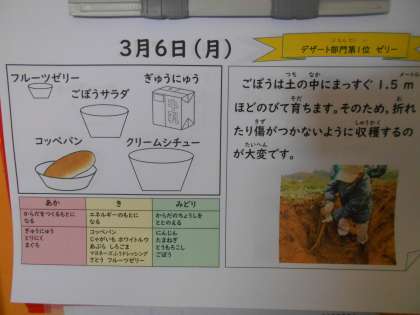 3月6日(月)
デザート部門第1位 ゼリー
フルーツゼリー
ごぼうサラダ
ぎゅうにゅう
牛乳
コッペパン
クリームシチュー
ごぼうは土の中にまっすぐ1.5m
ほどのびて育ちます。そのため、折れ
たり傷がつかないように収穫するの
が大変です。
あか
き
みどり
からだをつくるもとに
なる
エネルギーのもとに
なる
からだのちょうしを
ととのえる
ぎゅうにゅう
とりにく
まぐろ
コッペパン
じゃがいも ホワイトルウ
あぶら しろごま
マヨネーズふうドレッシング
さとう フルーツゼリー
にんじん
たまねぎ
とうもろこし
ごぼう